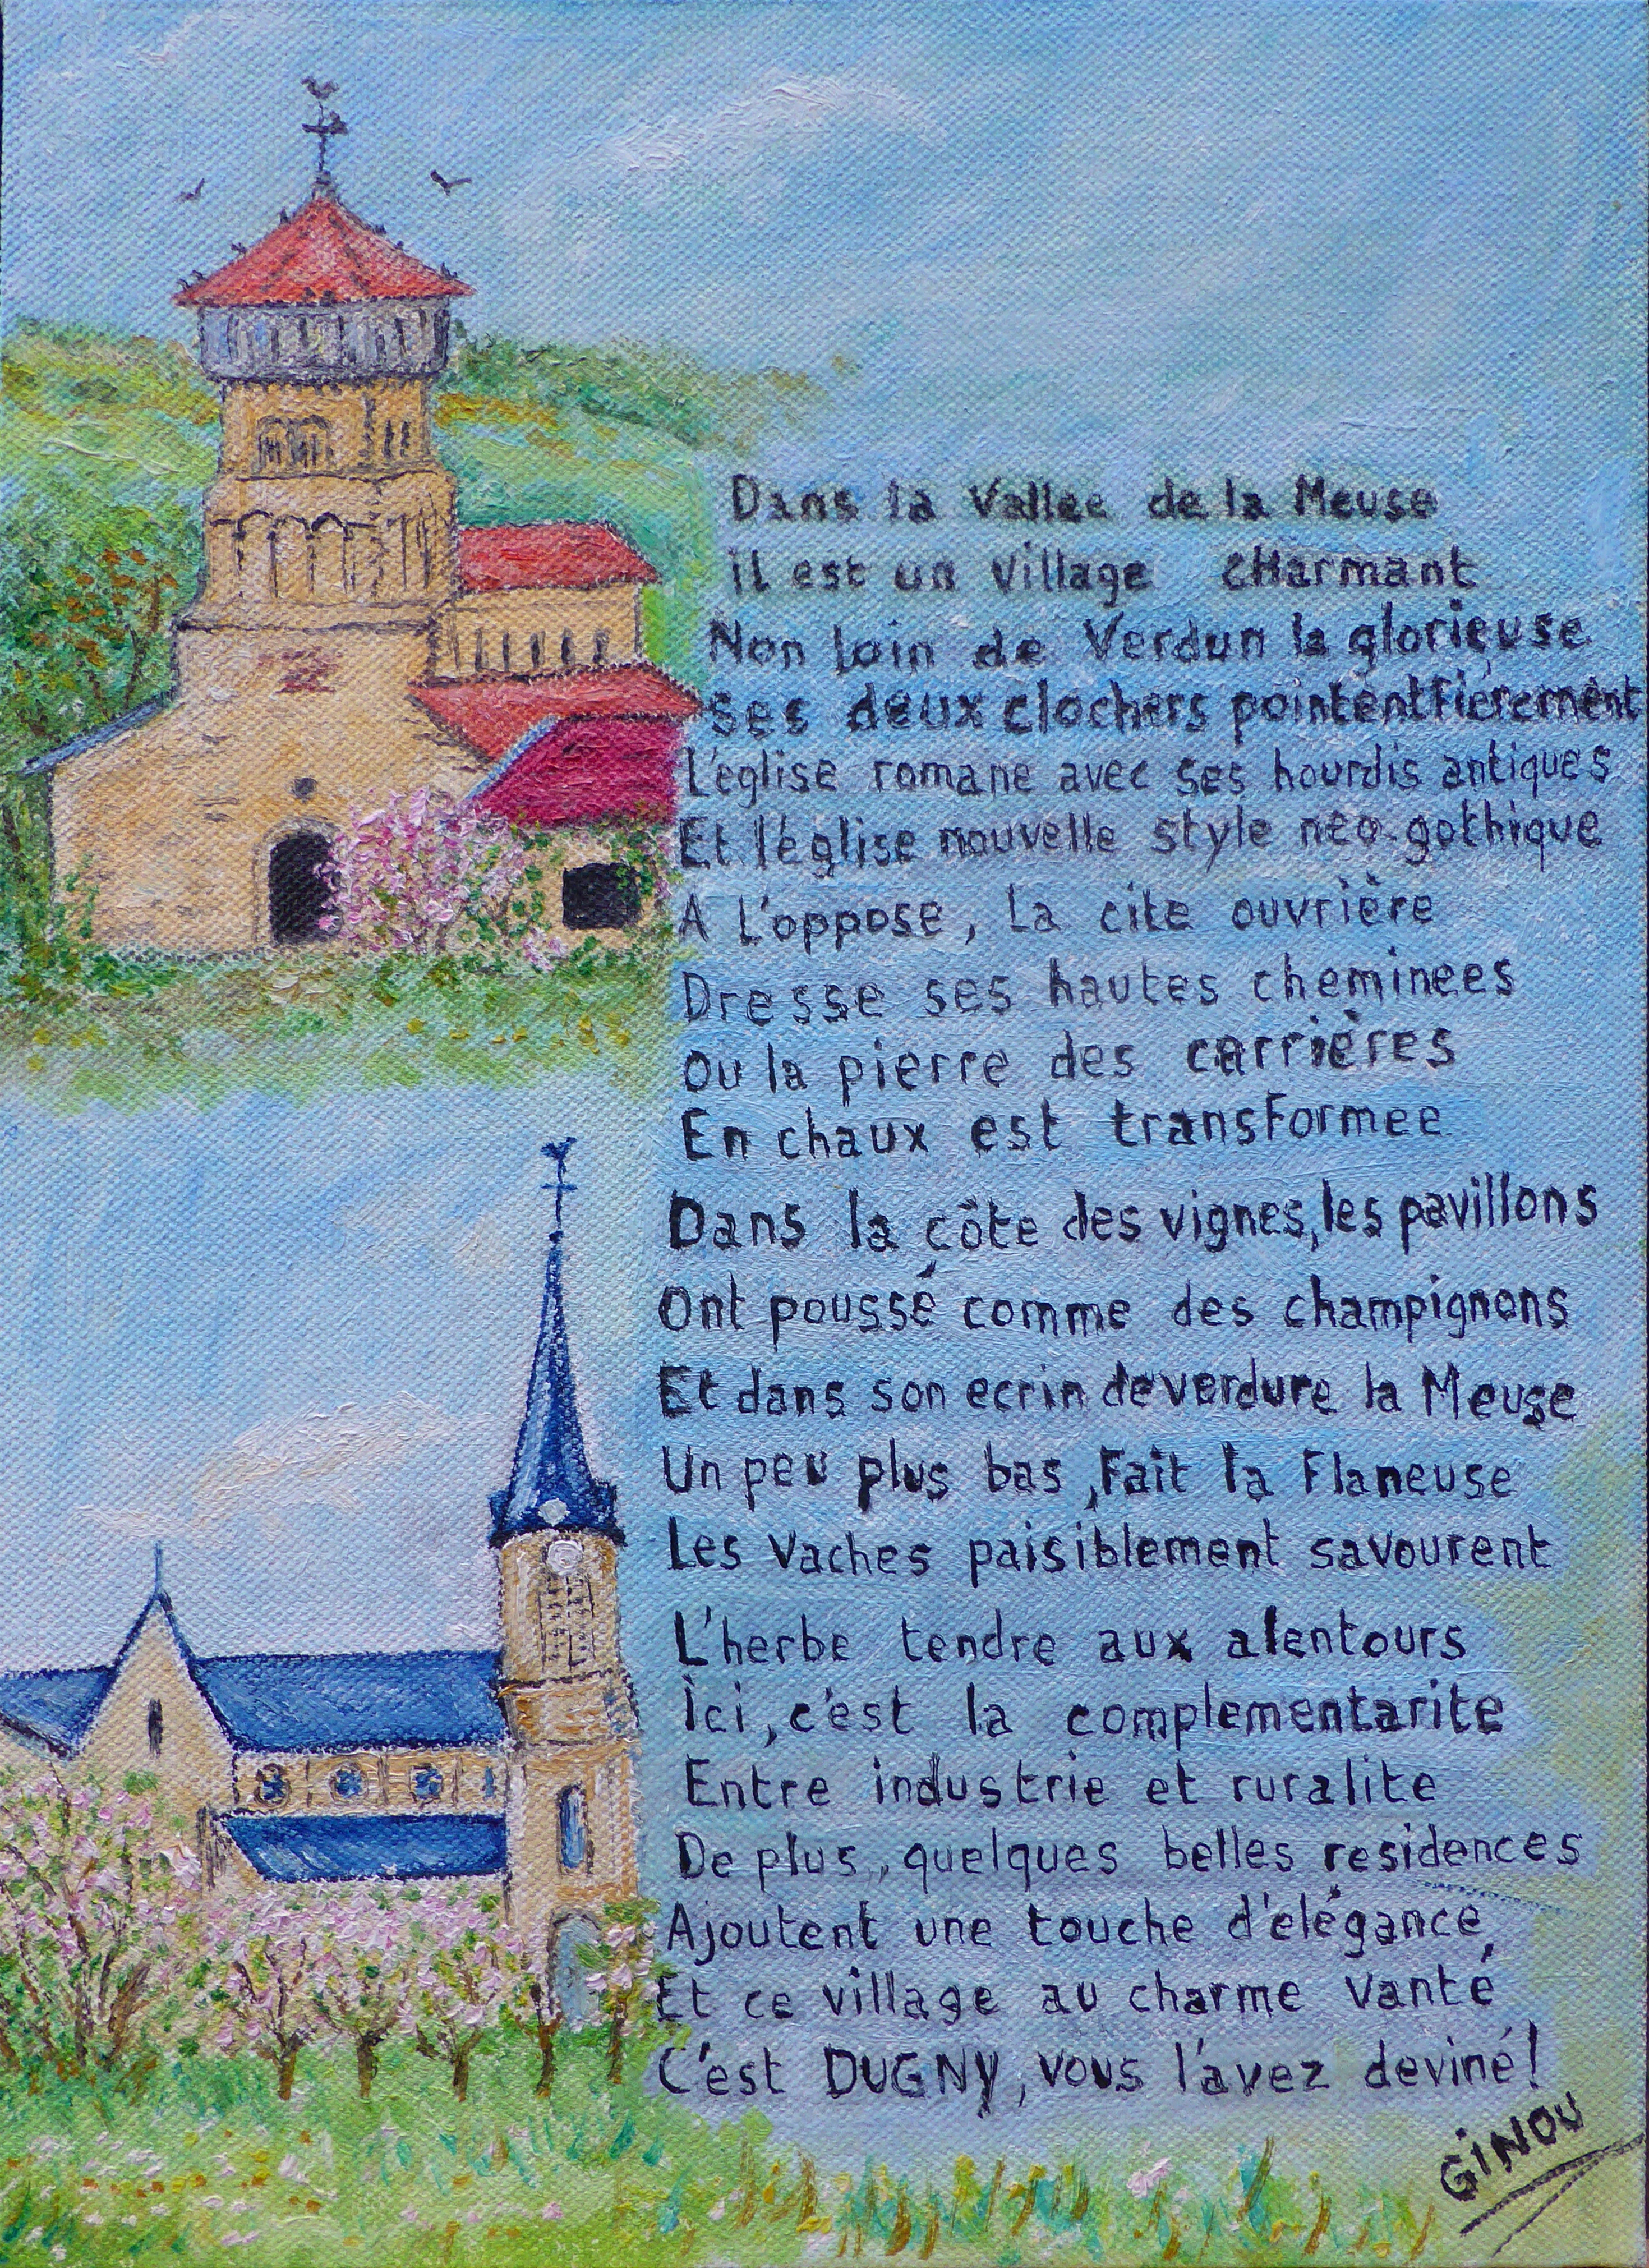 Dans la Vallee de la Meuse
il est un Village CHarmant
Non loin de Verdun la glorieuse
Ses deux clochers pointent fièrement
L'église romane avec ses hourdis antiques
Et l'église nouvelle style neo-gothique
A L'oppose, La cite ouvrière
Dresse ses hautes cheminees
Ou la pierre des carrières
En chaux est transformee
Dans la côte des vignes, les pavillons
Ont poussé comme des champignons
Et dans son ecrin de verdure la Meuse
Un peu plus bas, Fait la Flaneuse
Les Vaches paisiblement savourent
L'herbe tendre aux alentours
Ici, c'est la complementarite
Entre industrie et ruralite
De plus, quelques belles residences
Ajoutent une touche d'elégance,
Et ce village au charme Vanté
C'est DUGNY, vous l'avez deviné!
GiNOU